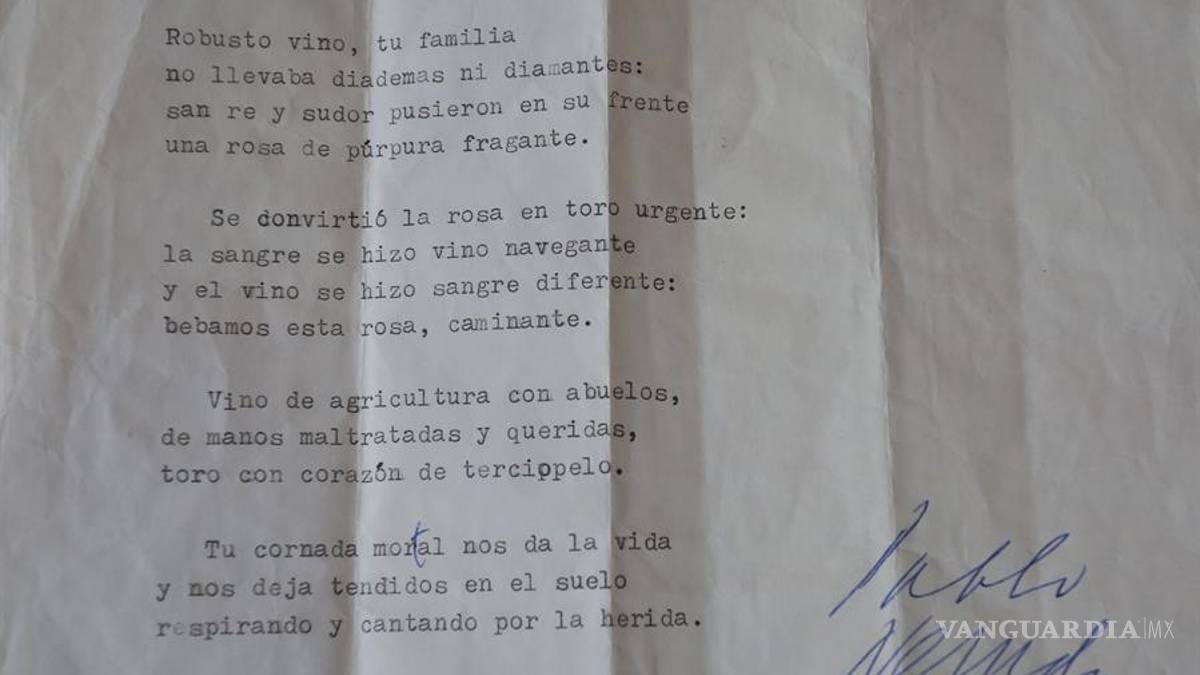 Robusto vino, tu familia
no llevaba diademas ni diamantes:
san re y sudor pusieron en su frente
una rosa de púrpura fragante.
Se donvirtió la rosa en toro urgente:
la sangre se hizo vino navegante
y el vino se hizo sangre diferente:
bebamos esta rosa, caminante.
Vino de agricultura con abuelos,
de manos maltratadas y queridas,
toro con corazón de tercippelo.
Tu cornada mortal nos da la vida
y nos deja tendidos en el suelo
respirando y cantando por la herida.
Pablo
Neruda
VANGUARDIA|MX